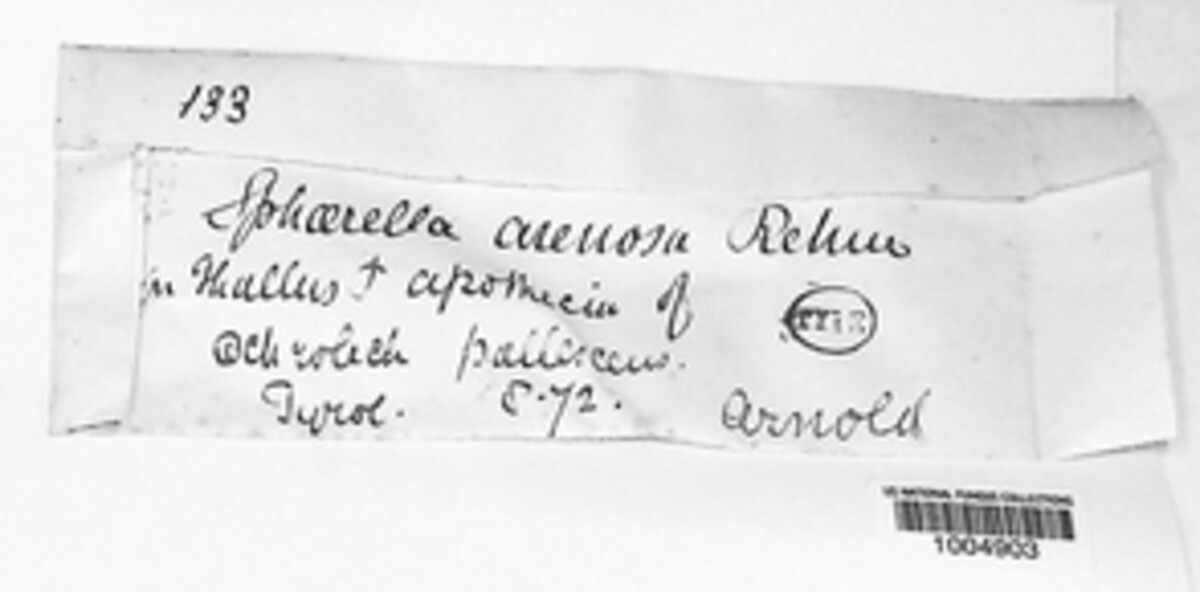 133
Sphærella arenosa Rehm
on thallus + apothecia of
Ochrolech pallescens.
Tyrol. 8.72. Arnold
US NATIONAL FUNGUS COLLECTIONS
1004903